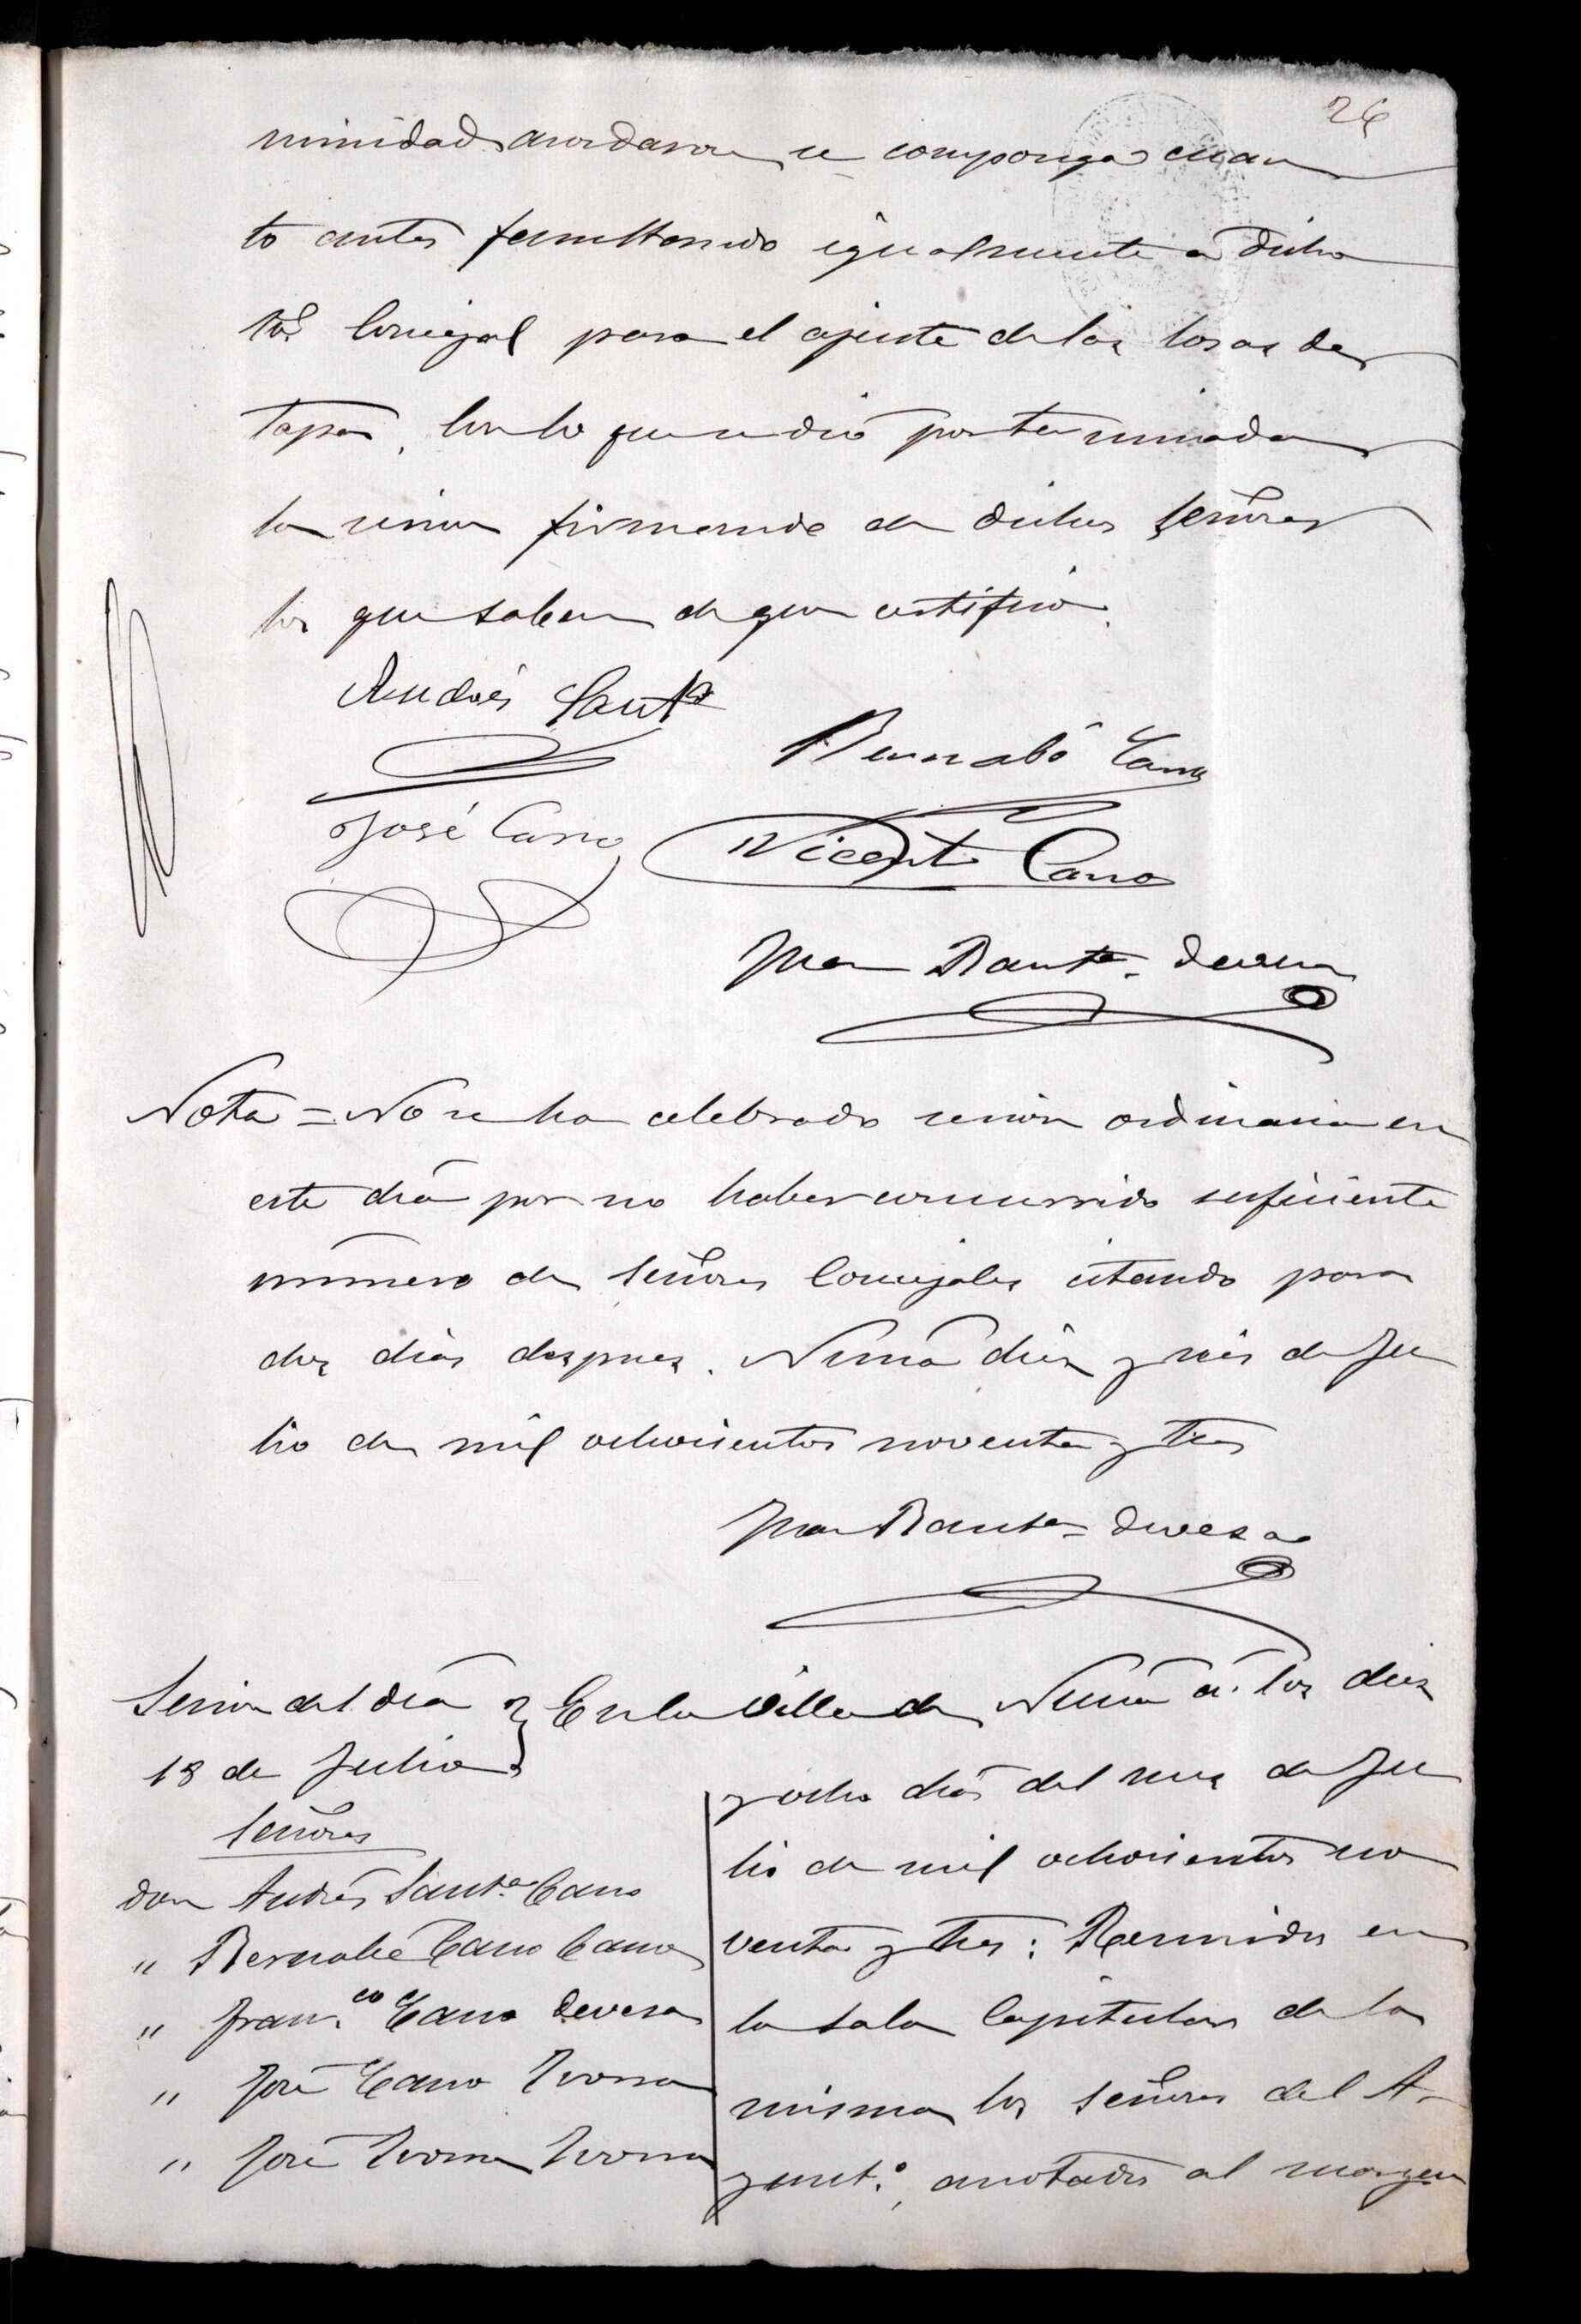 26
nimidad acordaron se componga cuan
to antes facultando igualmente a dicho
Sor. Concejal para el ajuste de las losas de
tapar. Con lo que se dió por terminada
la sesion firmando de dichos señores
los que saben de que certifico.
Andrés Santa
Bernabé Cano
José Cano
Vicente Cano
Juan Bauta. Devesa
Nota = No se ha celebrado sesion ordinaria en
este dia por no haber concurrido suficiente
número de señores Concejales citando para
dos dias despues. Nucia diez y seis de Ju
lio de mil ochocientos noventa y tres
Juan Bauta. Devesa
Sesion del dia
18 de Julio
Señores
don Andrés Santa. Cano
" Bernabé Cano Cano
" Franco. Cano Devesa
" José Cano Ivorra
" José Ivorra Ivorra
En la villa de Nucia á los diez
y ocho dias del mes de Ju
lio de mil ochocientos no
venta y tres: Reunidos en
la sala Capitular de la
misma los señores del A-
yunto. anotados al margen